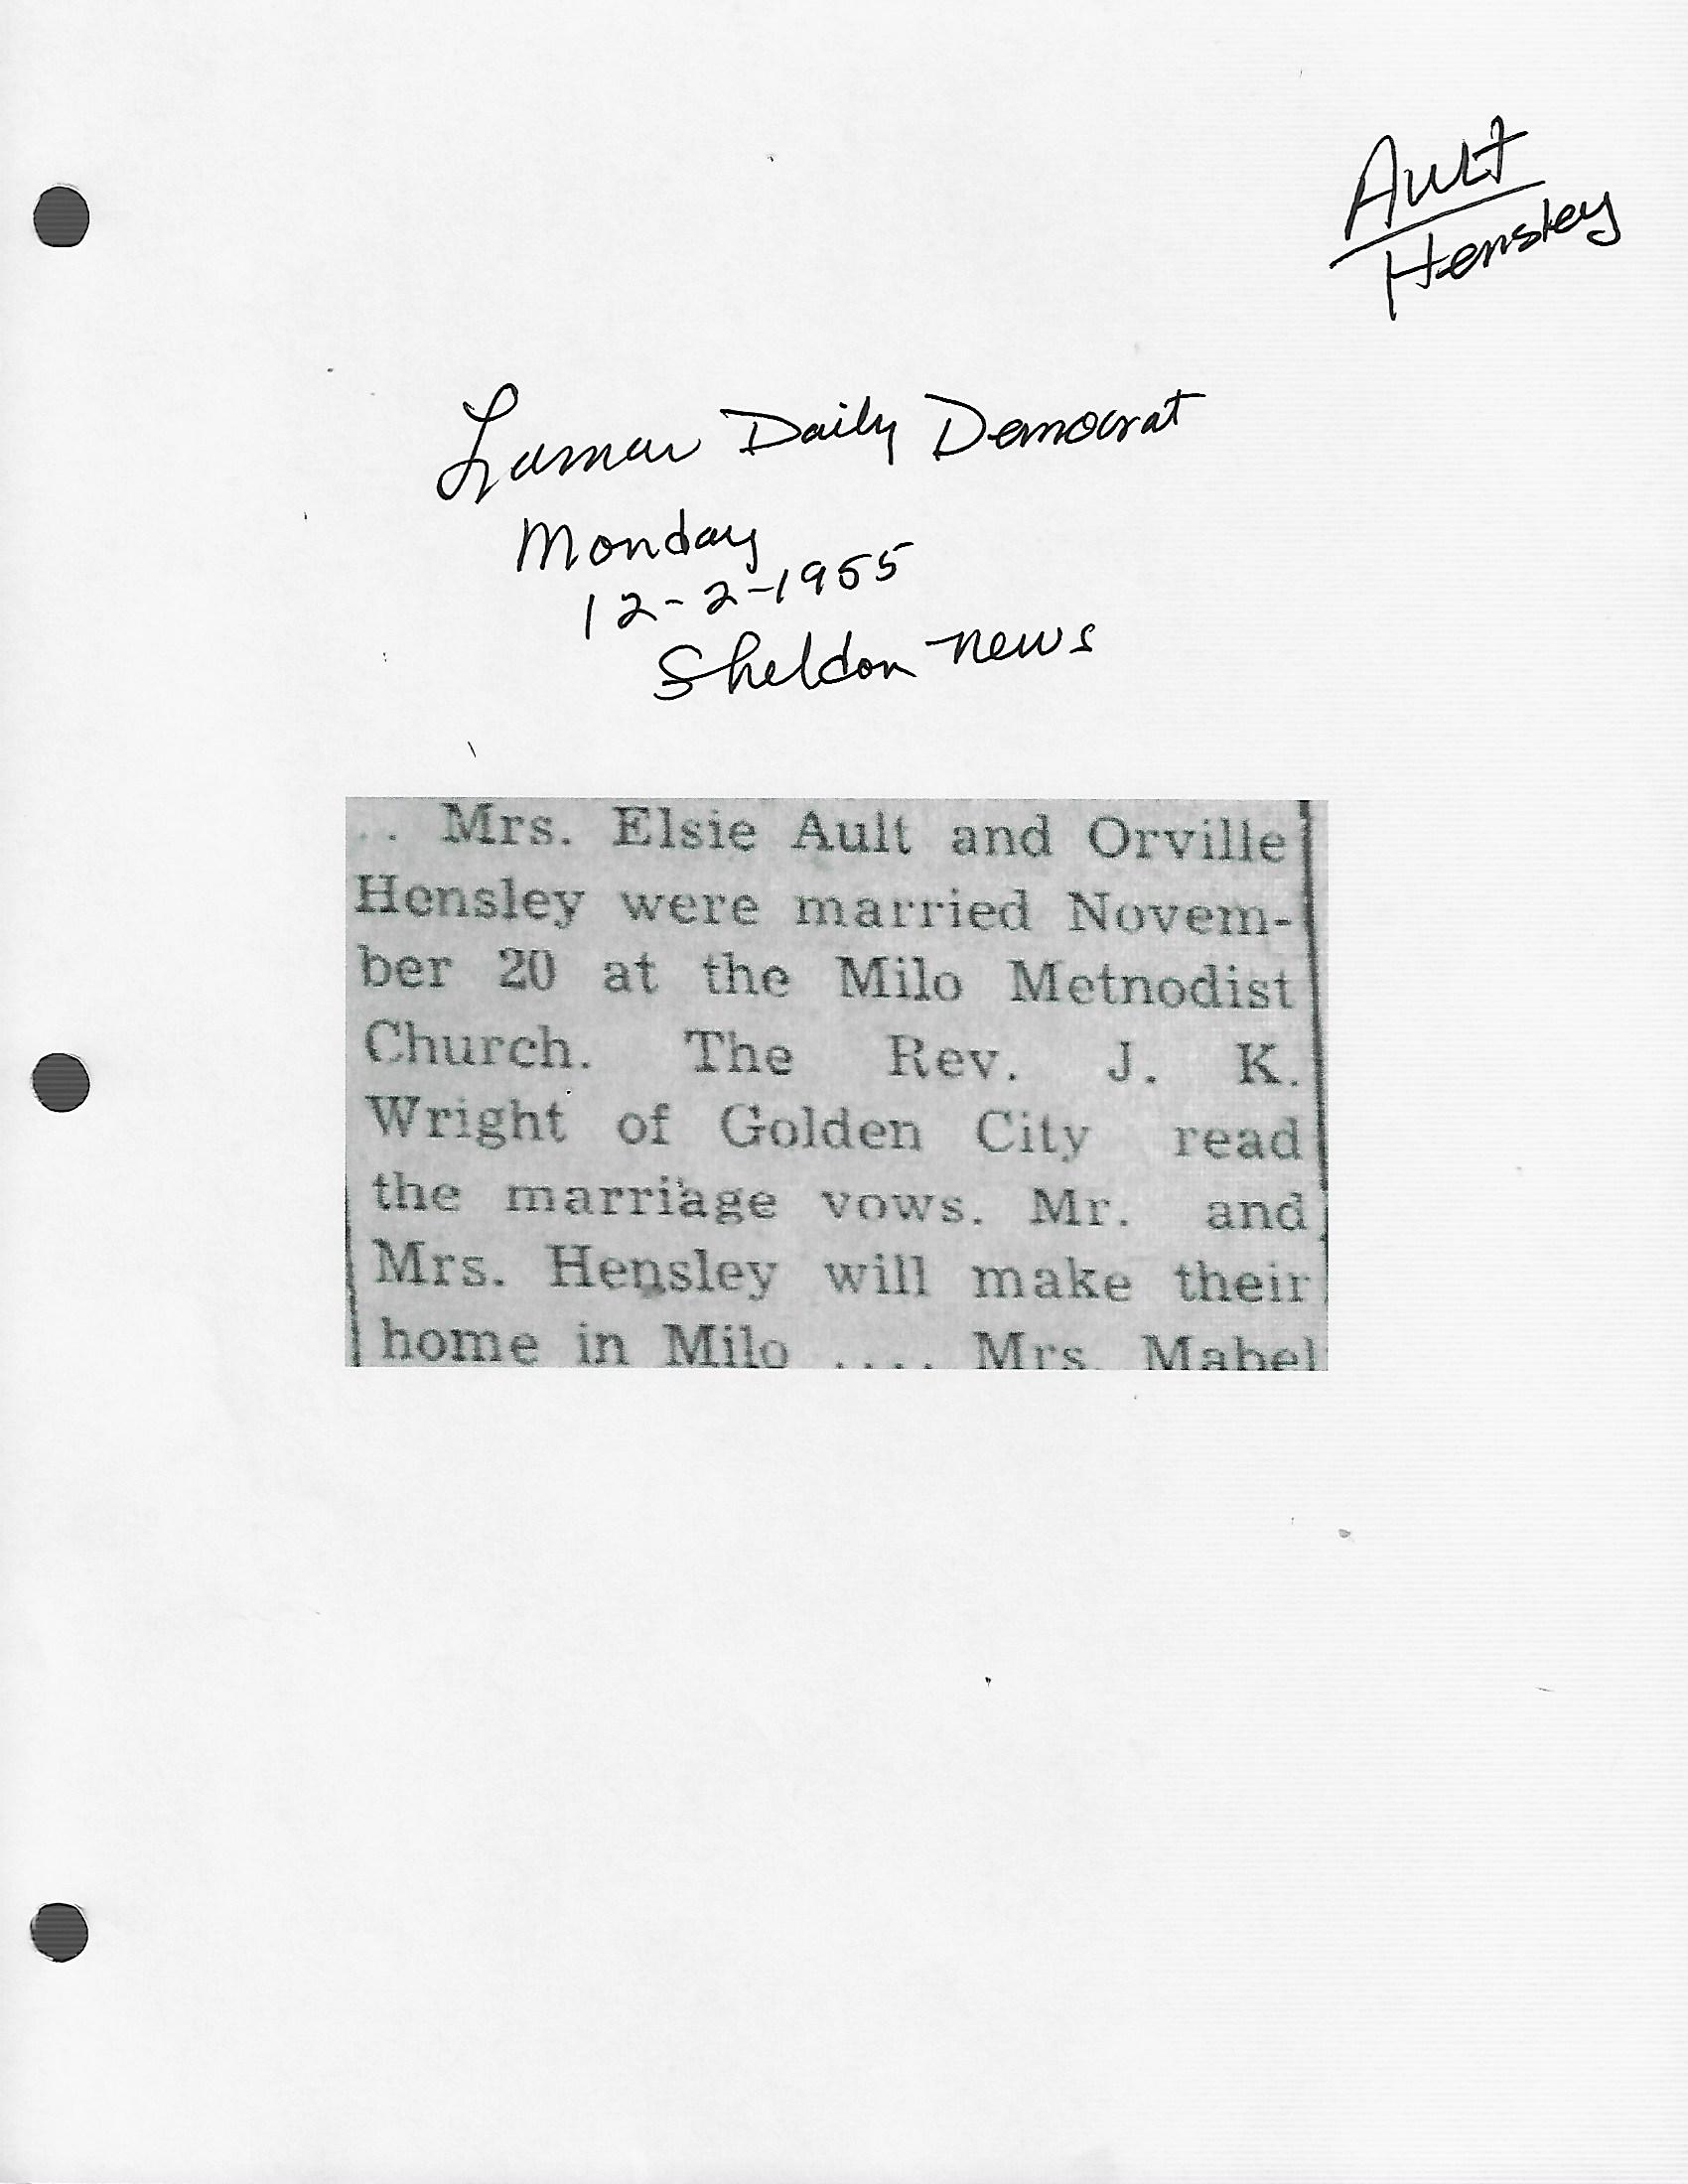 Ault
Hensley
Lamar Daily Democrat
Monday
12-2-1955
Sheldon news
.. Mrs. Elsie Ault and Orville
Hensley were married Novem-
ber 20 at the Milo Metnodist
Church. The Rev. J. K.
Wright of Golden City read
the marriage vows. Mr. and
Mrs. Hensley will make their
home in Milo .... Mrs. Mabel